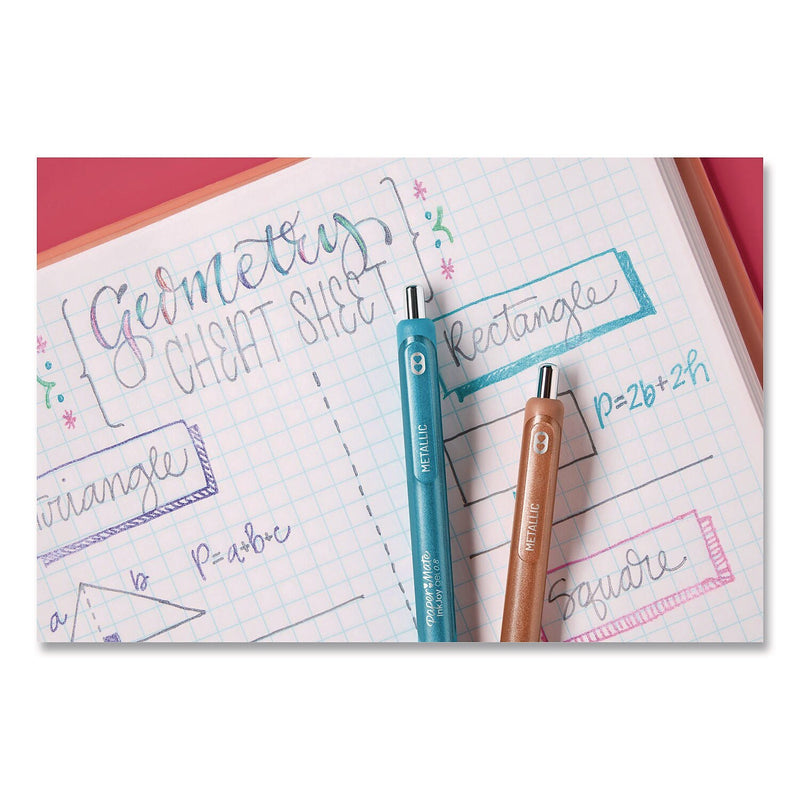 Geometry
CHEAT SHEET
Rectangle
P=2b+2h
Triangle
P=a+b+c
a
b
Square
METALLIC
PAPER MATE
InkJoy GEL 0.8
METALLIC